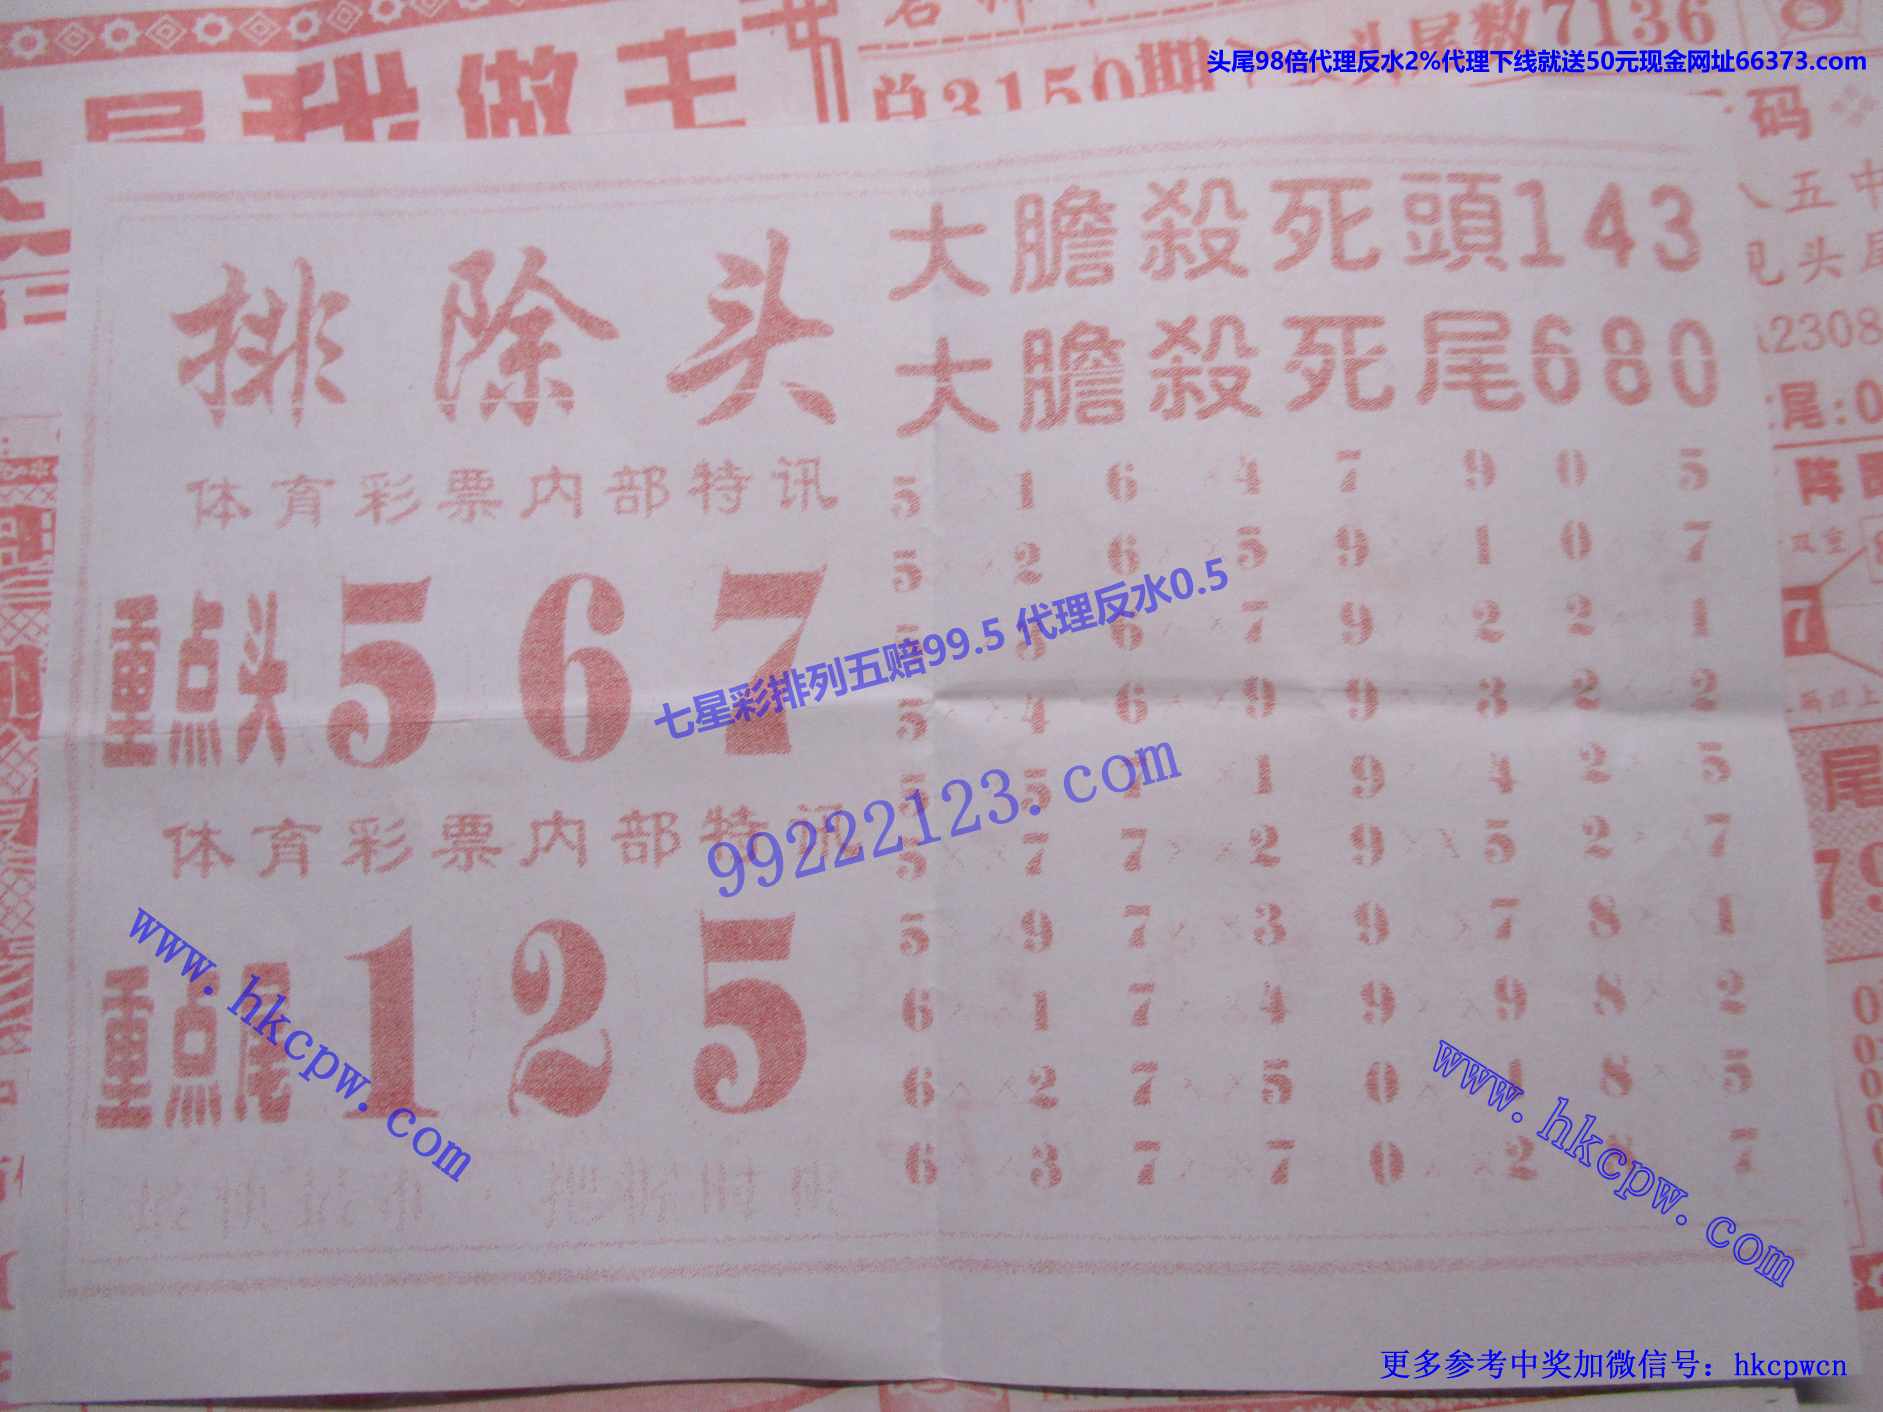 头尾98倍代理反水2%代理下线就送50元现金网址66373.com
头尾数7136
我做主
总3150期
码
五中
见头尾
2308
尾:0
阵
排除头
大膽殺死頭143
大膽殺死尾680
体育彩票内部特讯
重点头567
体育彩票内部特讯
重点尾125
5 1 6 4 7 9 0 5
5 2 6 5 9 1 0 7
3 6 7 9 2 2 1
5 4 6 9 9 3 2 2
5 5 7 1 9 4 2 5
5 7 7 2 9 5 2 7
5 9 7 3 9 7 8 1
6 1 7 4 9 9 8 2
6 2 7 5 0 1 8 5
6 3 7 7 0 2 8 7
七星彩排列五赔99.5 代理反水0.5
99222123.com
www.hkcpw.com
www.hkcpw.com
7
尾
79
更多参考中奖加微信号：hkcpwcn